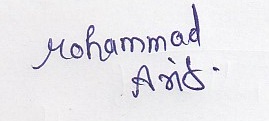 Mohammad
Arif.